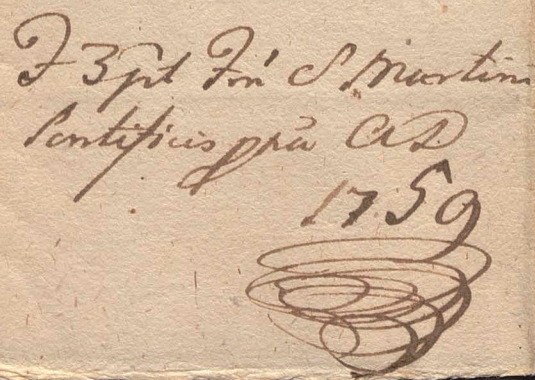 F 3 pt Fm S Martini
Pontificis pria AD
1759